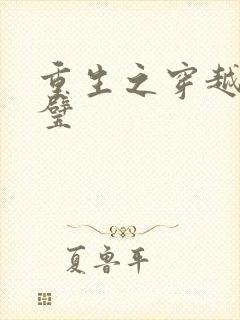 重生之穿越
璧
夏鲁平